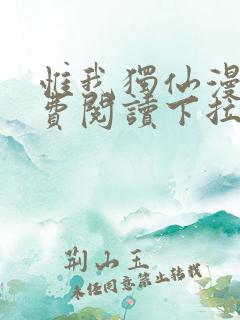 惟我獨仙漫
費閱讀下拉
荆山玉
未经同意禁止转载